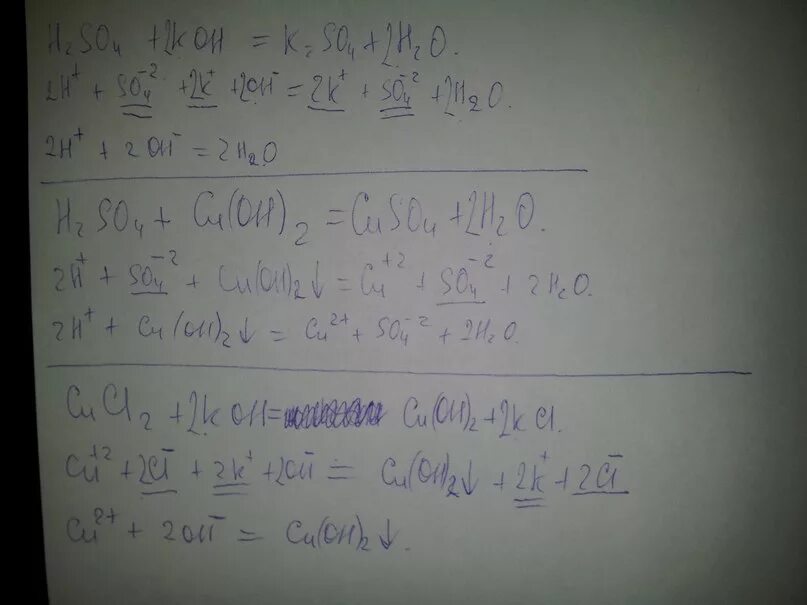 H₂SO₄ + 2KOH = K₂SO₄ + 2H₂O.
2H⁺ + SO₄⁻² + 2K⁺ + 2OH⁻ = 2K⁺ + SO₄⁻² + 2H₂O.
2H⁺ + 2OH⁻ = 2H₂O
H₂SO₄ + Cu(OH)₂ = CuSO₄ + 2H₂O.
2H⁺ + SO₄⁻² + Cu(OH)₂↓ = Cu⁺² + SO₄⁻² + 2H₂O.
2H⁺ + Cu(OH)₂↓ = Cu²⁺ + SO₄⁻² + 2H₂O.
CuCl₂ + 2KOH = Cu(OH)₂ + 2KCl.
Cu⁺² + 2Cl⁻ + 2K⁺ + 2OH⁻ = Cu(OH)₂↓ + 2K⁺ + 2Cl⁻
Cu²⁺ + 2OH⁻ = Cu(OH)₂↓.